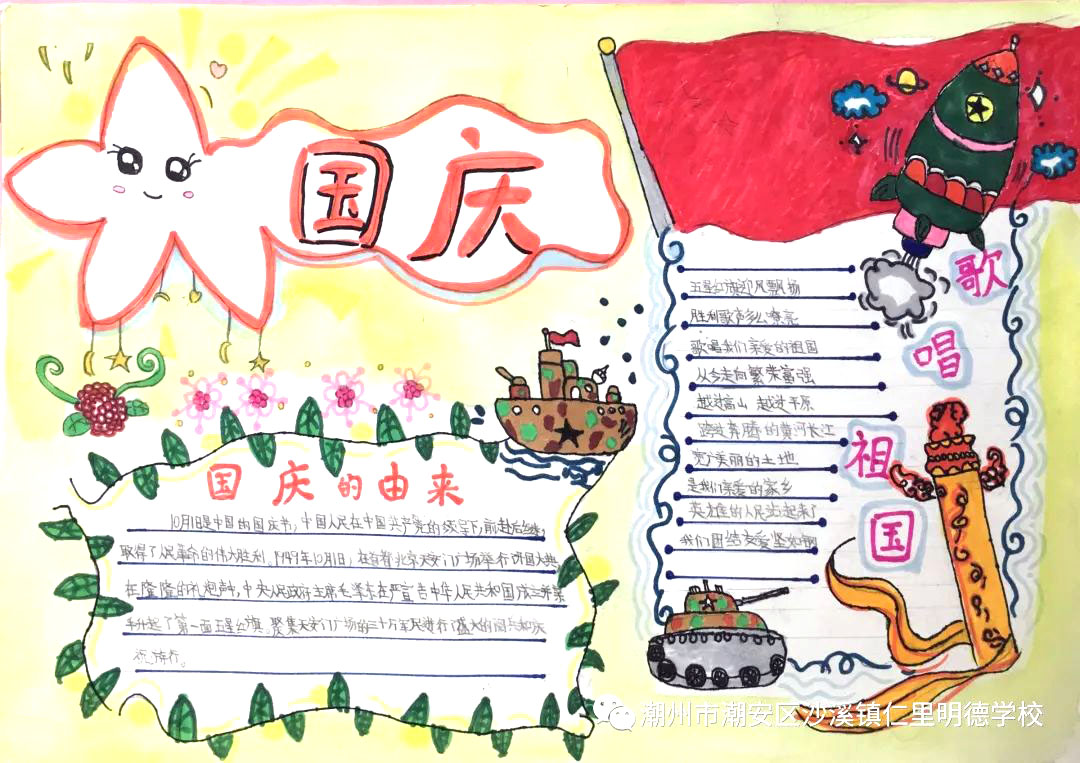 国庆
国庆的由来
10月1日是中国的国庆节,中国人民在中国共产党的领导下,前赴后继,
取得了人民革命的伟大胜利。1949年10月1日,在首都北京天安门广场举行开国大典,
在隆隆的礼炮声中,中央人民政府主席毛泽东庄严宣告中华人民共和国成立并亲
手升起了第一面五星红旗。聚集天安门广场的三十万军民进行了盛大的阅兵和庆
祝游行。
歌唱祖国
五星红旗迎风飘扬
胜利歌声多么嘹亮
歌唱我们亲爱的祖国
从今走向繁荣富强
越过高山 越过平原
跨过奔腾的黄河长江
宽广美丽的土地
是我们亲爱的家乡
英雄的人民站起来了
我们团结友爱坚如钢
潮州市潮安区沙溪镇仁里明德学校